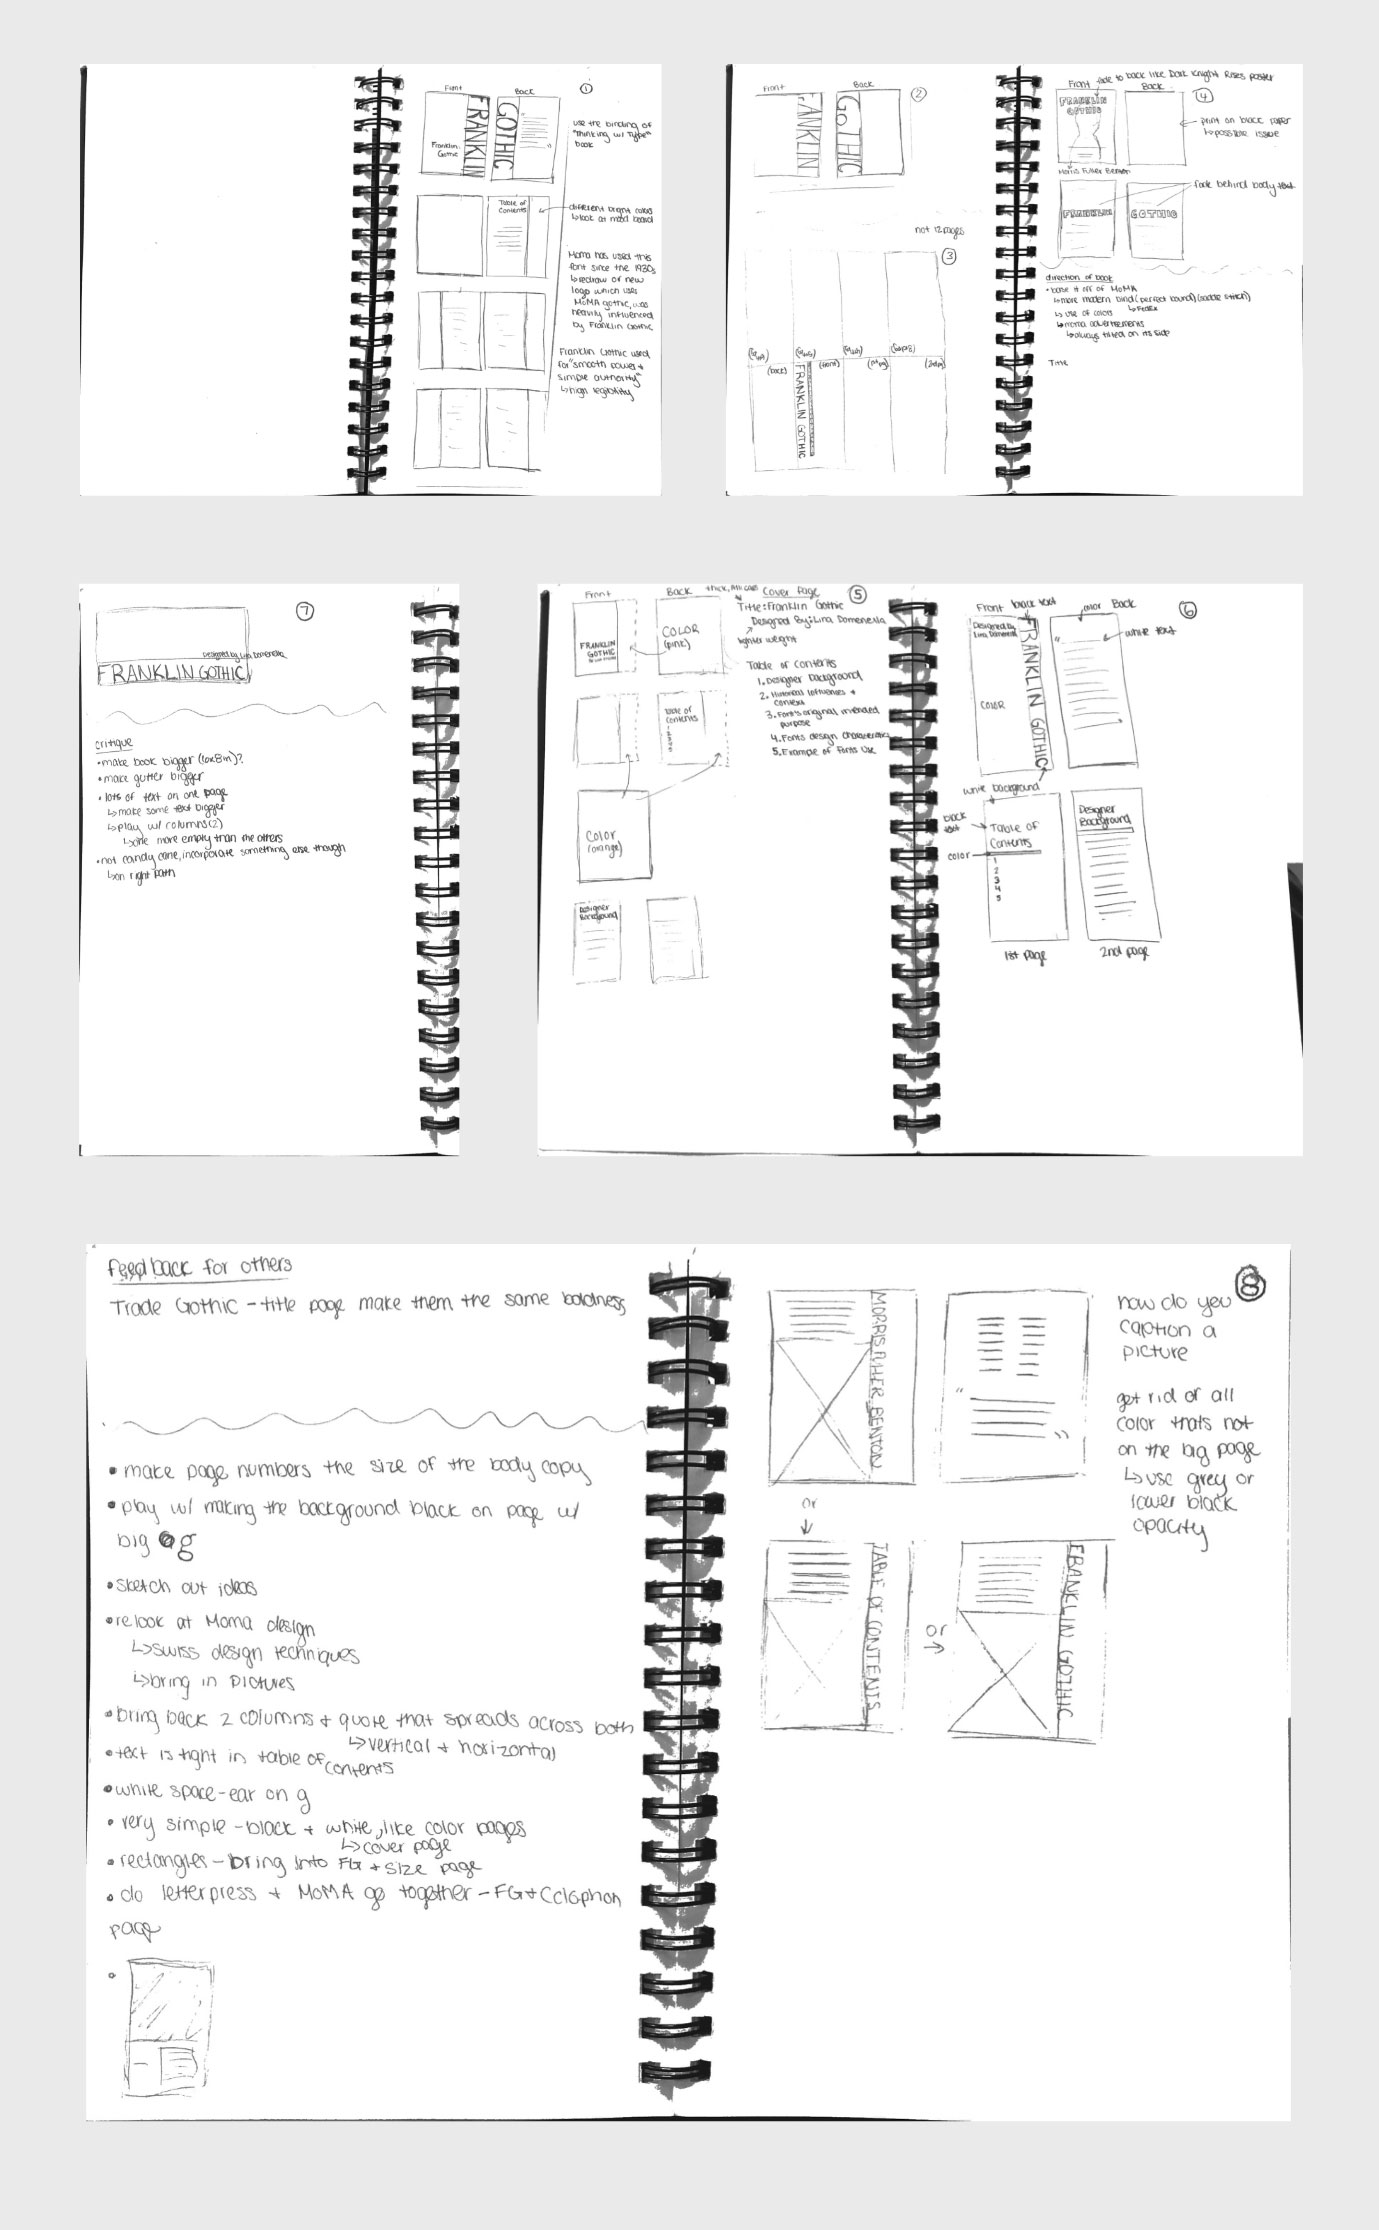 Front
Back
①
FRANKLIN
GOTHIC
Franklin
Gothic
use the binding of
"Thinking w/ Type"
book
Table of
Contents
different bright colors
↳look at mood board
Moma has used this
font since the 1930s
↳redraw of new
logo which uses
MoMA gothic, was
heavily influenced
by Franklin Gothic
Franklin Gothic used
for "smooth power +
simple authority"
↳high legibility
Front
Back
②
FRANKLIN
GOTHIC
not 12 pages
③
(back)
(front)
FRANKLIN GOTHIC
Front
fade to back like Dark Knight Rises poster
Back
④
FRANKLIN
GOTHIC
print on black paper
↳possible issue
Morris Fuller Benton
fade behind body text
FRANKLIN
GOTHIC
direction of book
•base it off of MoMA
↳more modern bind (perfect bound) (saddle stitch)
↳FedEx
↳use of colors
↳moma advertisements
↳always tilted on its side
Title
⑦
Designed by Lira Domenella
FRANKLIN GOTHIC
critique
•make book bigger (6x8in)?
•make gutter bigger
•lots of text on one page
↳make some text bigger
↳play w/ columns (2)
↳one more empty than the others
•not candy cane, incorporate something else though
↳on right path
Front
Back
thick, All caps
Cover Page
⑤
FRANKLIN
GOTHIC
COLOR
(pink)
Title: Franklin Gothic
Designed By: Lira Domenella
lighter weight
Table of
Contents
Table of Contents
1. Designer Background
2. Historical Influences +
context
3. Font's original intended
purpose
4. Fonts design characteristics
5. Example of Fonts Use
Color
(orange)
Designer
Background
Front
black text
color
Back
⑥
Designed by
Lira Domenella
FRANKLIN GOTHIC
white text
COLOR
white background
black
text
Table of
Contents
color
1
2
3
4
5
Designer
Background
1st page
2nd page
feedback for others
Trade Gothic - title page make them the same boldness
• make page numbers the size of the body copy
• play w/ making the background black on page w/
big g
• sketch out ideas
• relook at Moma design
↳swiss design techniques
↳bring in pictures
• bring back 2 columns + quote that spreads across both
↳vertical + horizontal
• text is tight in table of contents
• white space - ear on g
• very simple - black + white, like color pages
↳cover page
• rectangles - bring into FG + size page
• do letterpress + MoMA go together - FG + Cclophon
page
⑧
MORRIS FULLER BENTON
how do you
caption a
picture
get rid of all
color thats not
on the big page
↳use grey or
lower black
opacity
or
TABLE OF CONTENTS
or
FRANKLIN GOTHIC